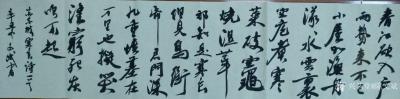 春江欲入户
雨势来不已
小屋如渔舟
濛濛水雲裏
空庖煮寒
菜破竈
燒濕葦
那知是寒食
但見烏銜
帋君門深
九重墳墓在
萬里也擬哭
塗窮死灰
吹不起